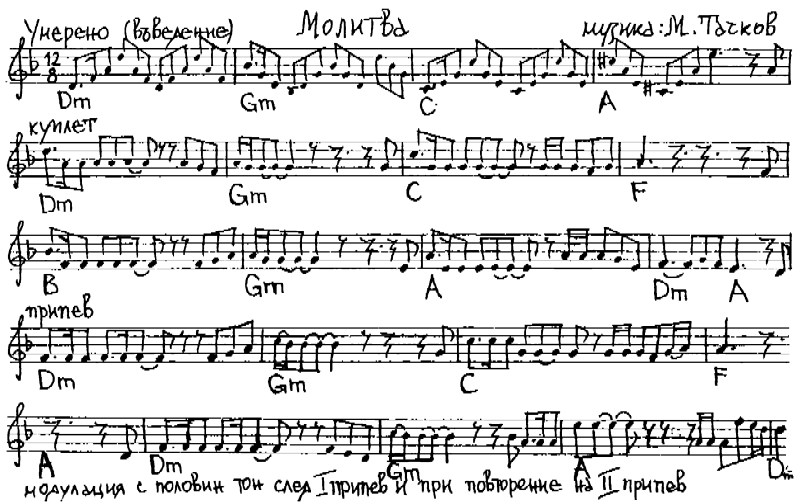 Умерено (въведение) Молитва музика: М. Тачков
12
8
Dm Gm C A
куплет
Dm Gm C F
B Gm A Dm A
припев
Dm Gm C F
A Dm Gm A Dm
модулация с половин тон след I припев и при повторение на II припев